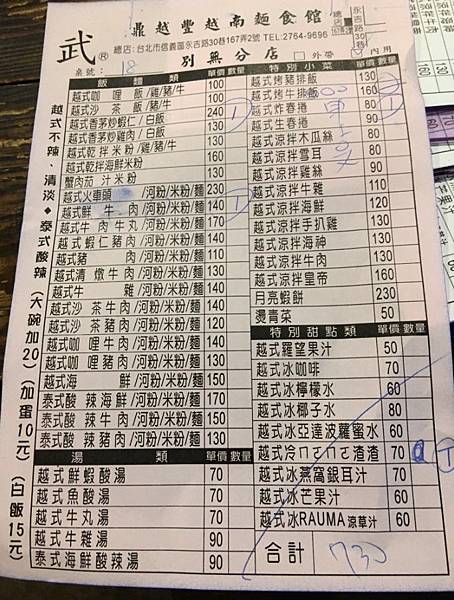 武® 鼎越豐越南麵食館
總店:台北市信義區永吉路30巷167弄2號 TEL:2764-9696
別無分店
桌號: 18 外帶 內用
越式不辣、清淡◆泰式酸辣 (大碗加20) (加蛋10元) (白飯15元)
飯麵類 單價 數量
越式咖哩飯/雞/豬/牛 100
越式沙茶飯/豬/牛 100
越式香茅炒蝦仁/白飯 240 1
越式香茅炒雞肉/白飯 130
越式乾拌米粉/雞/豬/牛 130
越式乾拌海鮮米粉 160
蟹肉茄汁米粉 130
越式火車頭/河粉/米粉/麵 230
越式鮮牛肉/河粉/米粉/麵 140 1
越式牛肉牛丸/河粉/米粉/麵 170
越式蝦仁豬肉/河粉/米粉/麵 140
越式豬肉/河粉/米粉/麵 130
越式清燉牛肉/河粉/米粉/麵 130
越式牛雜/河粉/米粉/麵 130
越式沙茶牛肉/河粉/米粉/麵 140
越式沙茶豬肉/河粉/米粉/麵 130
越式咖哩牛肉/河粉/米粉/麵 140
越式咖哩豬肉/河粉/米粉/麵 130
越式海鮮/河粉/米粉/麵 150
泰式酸辣海鮮/河粉/米粉/麵 170
泰式酸辣牛肉/河粉/米粉/麵 150
泰式酸辣豬肉/河粉/米粉/麵 130
湯類 單價 數量
越式鮮蝦酸湯 70
越式魚酸湯 70
越式牛丸湯 70
越式牛雜湯 90
泰式海鮮酸辣湯 90
特別小菜 單價 數量
越式烤豬排飯 130
越式烤牛排飯 160
越式炸春捲 80
越式生春捲 90
越式涼拌木瓜絲 80
越式涼拌雪耳 80
越式涼拌雞絲 90
越式涼拌牛雜 110
越式涼拌海鮮 120
越式涼拌手扒雞 130
越式涼拌海神 130
越式涼拌牛肉 130
越式涼拌皇帝 160
月亮蝦餅 230
燙青菜 50
特別甜點類 單價 數量
越式羅望果汁 50
越式冰咖啡 70
越式冰檸檬水 60
越式冰椰子水 80
越式冰亞達波蘿蜜水 60
越式冷ㄇㄎㄇㄎ渣渣 70 1
越式冰燕窩銀耳汁 70
越式冰芒果汁 60
越式冰RAUMA涼草汁 60
合計 730